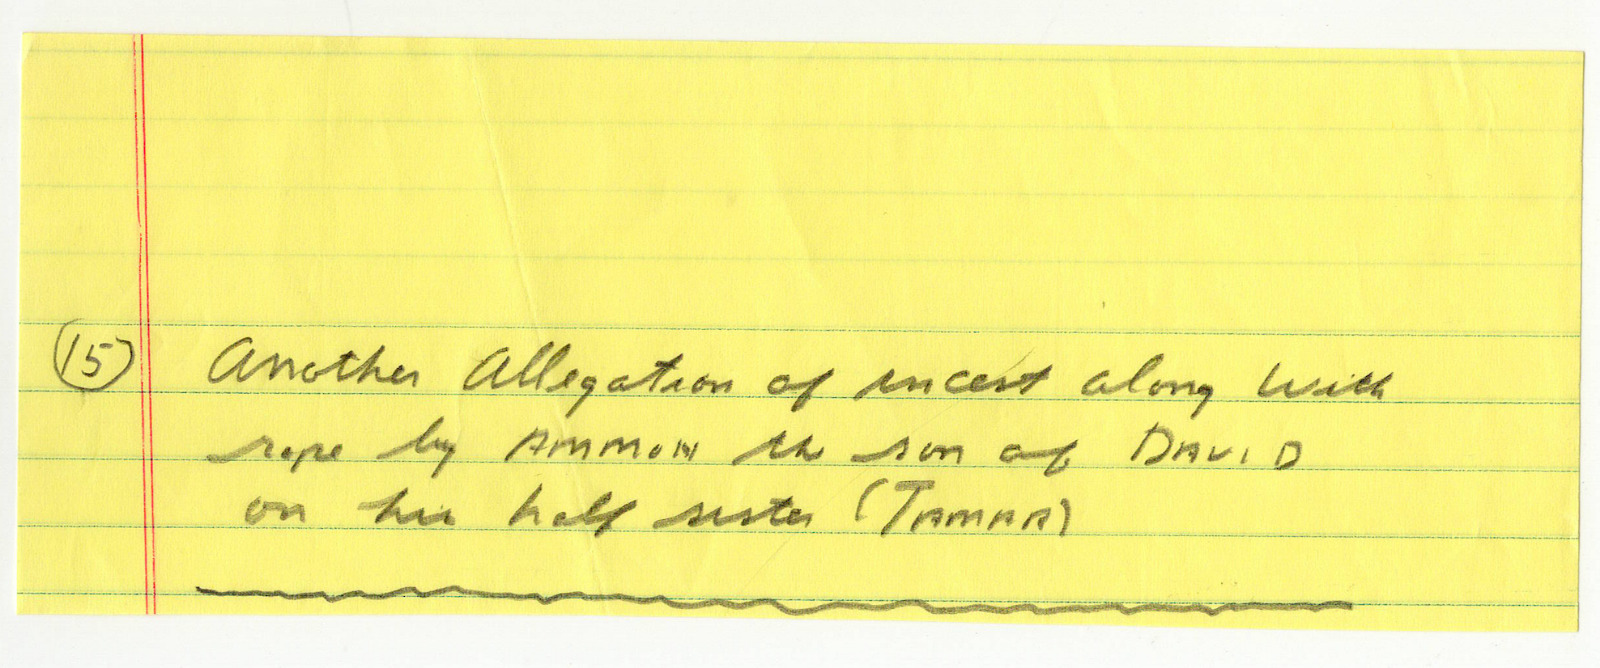 (15) Another Allegation of incest along with
rape by AMMON the son of DAVID
on his half sister (TAMAR)